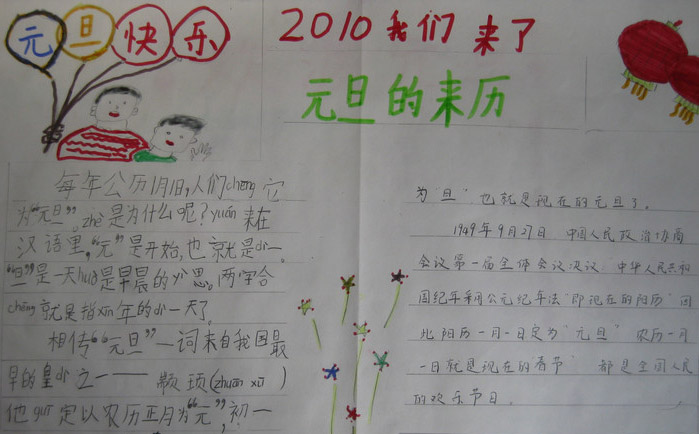 元旦快乐
2010我们来了
元旦的来历
每年公历1月1日,人们chēng它
为“元旦”,zhè是为什么呢?yuán来在
汉语里,“元”是开始,也就是dì一。
“旦”是一天huò是早晨的yì思。两字合
chēng就是指xīn年的dì一天了。
相传“元旦”一词来自我国最
早的皇dì之一——颛顼(zhuān xū)
他guī定以农历正月为“元”,初一
为“旦”也就是现在的元旦了。
1949年9月27日 中国人民政治协商
会议第一届全体会议决议 中华人民共和
国纪年采用公元纪年法“即现在的阳历”因
此阳历一月一日定为“元旦” 农历一月
一日就是现在的春节” 都是全国人民
的欢乐节日。